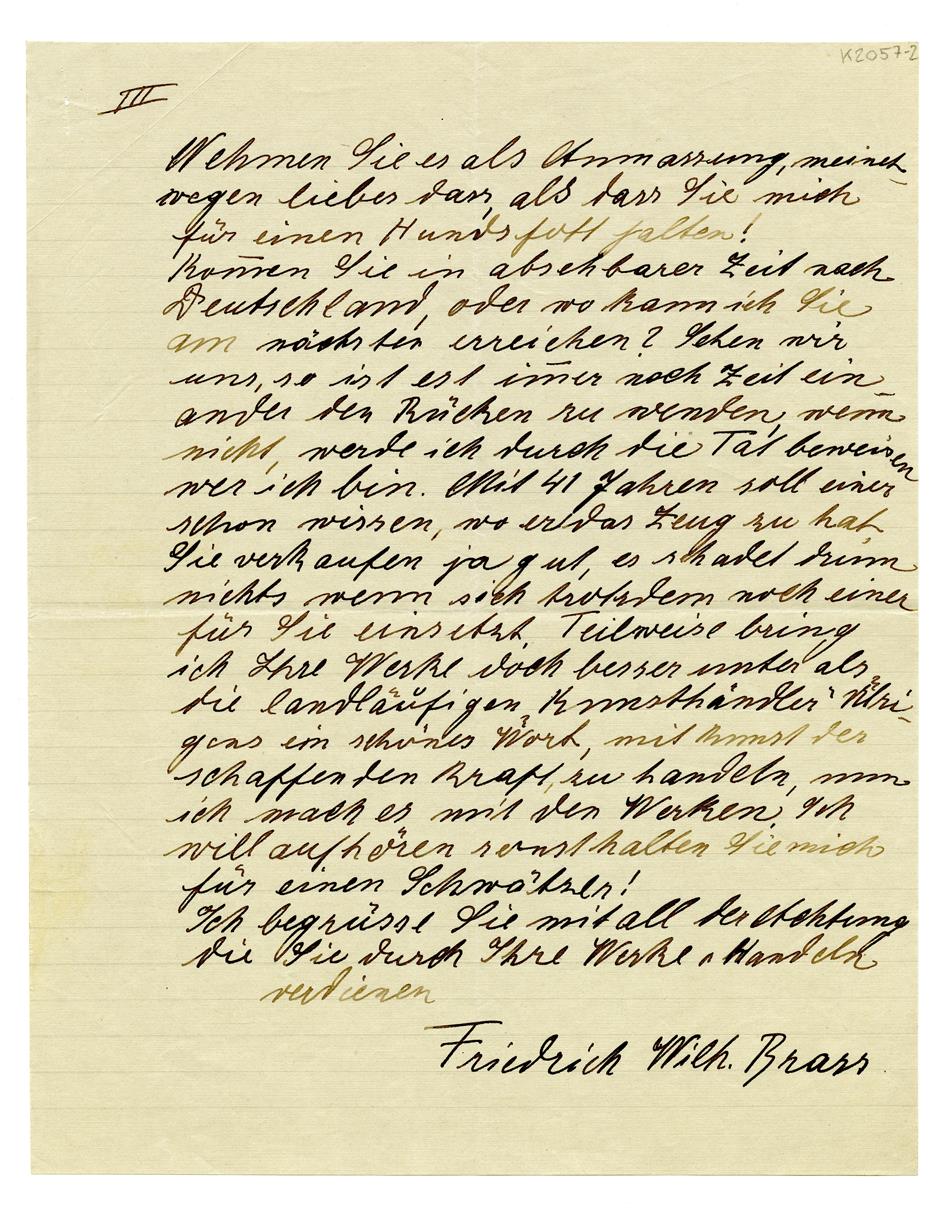 K2057-2
III
Nehmen Sie es als Anmassung, meinet
wegen lieber dass, als dass Sie mich
für einen Hundsfott halten!
Kom̅en Sie in absehbarer Zeit nach
Deutschland, oder wo kann ich Sie
am nächsten erreichen? Sehen wir
uns, so ist est im̅er noch Zeit ein
ander den Rücken zu wenden, wenn
nicht, werde ich durch die Tat beweisen
wer ich bin. Mit 41 Jahren soll einer
schon wissen, wo er das Zeug zu hat,
Sie verkaufen ja gut, es schadet drum
nichts wenn sich trotzdem noch einer
für Sie einsetzt, Teilweise bring
ich Ihre Werke doch besser unter als
die landläufigen „Kunsthändler" Übri-
gens ein schönes Wort, mit Kunst der
schaffenden Kraft, zu handeln, nun
ich mach es mit den Werken, Ich
will aufhören sonst halten Sie mich
für einen Schwätzer!
Ich begrüsse Sie mit all der Achtung
die Sie durch Ihre Werke u Handeln
verdienen
Friedrich Wilh. Brass.